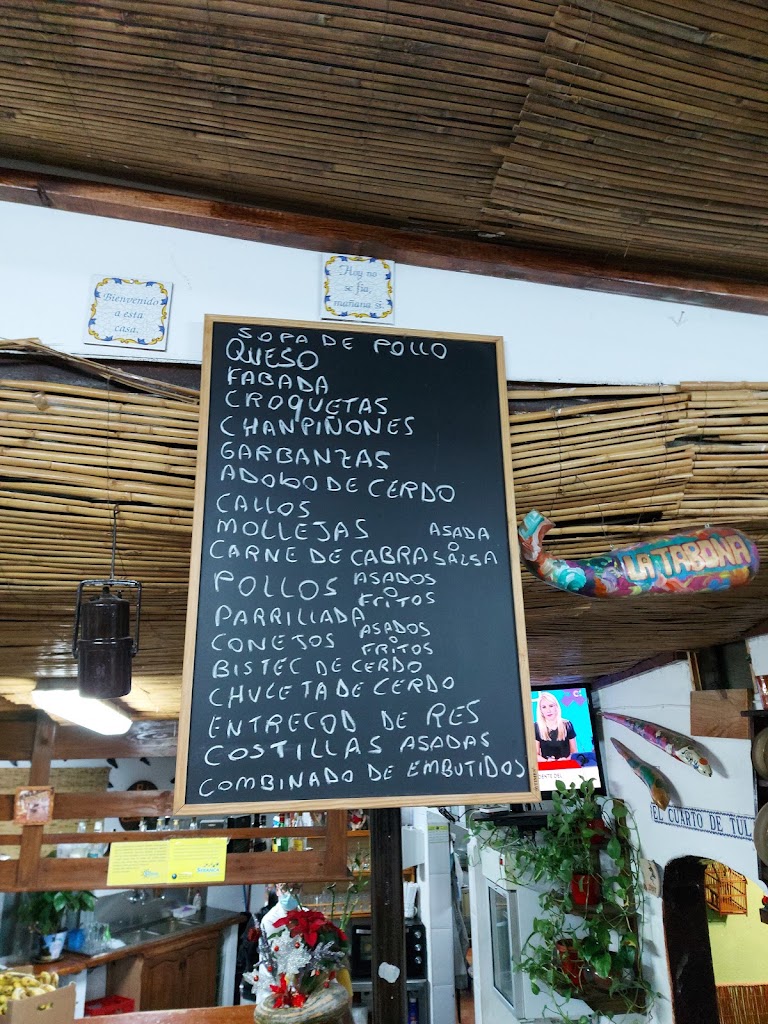 Bienvenido
a esta
casa.
Hoy no
se fía,
mañana sí.
SOPA DE POLLO
QUESO
FABADA
CROQUETAS
CHANPIÑONES
GARBANZAS
ADOBO DE CERDO
CALLOS
MOLLEJAS
CARNE DE CABRA ASADA O SALSA
POLLOS ASADOS O FRITOS
PARRILLADA
CONEJOS ASADOS O FRITOS
BISTEC DE CERDO
CHULETA DE CERDO
ENTRECOD DE RES
COSTILLAS ASADAS
COMBINADO DE EMBUTIDOS
LA TABONA
EL CUARTO DE TUL